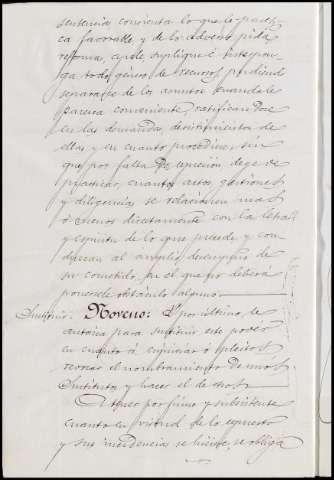 sentencia consienta lo que le parezca
ca favorable y de lo adverso pida
reforma, apele suplique é interpon-
ga todo género de recursos pudiendo
separarse de los asuntos cuando le
parezca conveniente, ratificandose
en las demandas, desistimientos de
ellas y en cuanto procediere, sin
que por falta de expresión deje de
practicar, cuantos actos, gestiones
y diligencias se relacionen mas
ó menos directamente con la letra
y espiritu de lo que precede y con-
duzcan al amplio desempeño de
su cometido, en el que no deberá
ponersele obstáculo alguno.
Sustituir. Noveno: Y por último, le
autoriza para sustituir este poder
en cuanto á
revocar el nombramiento de unos
Sustitutos y hacer el de otros.
A tener por firme y subsistente
cuanto en virtud de lo expuesto
y sus incidencias se hiciere, se obliga